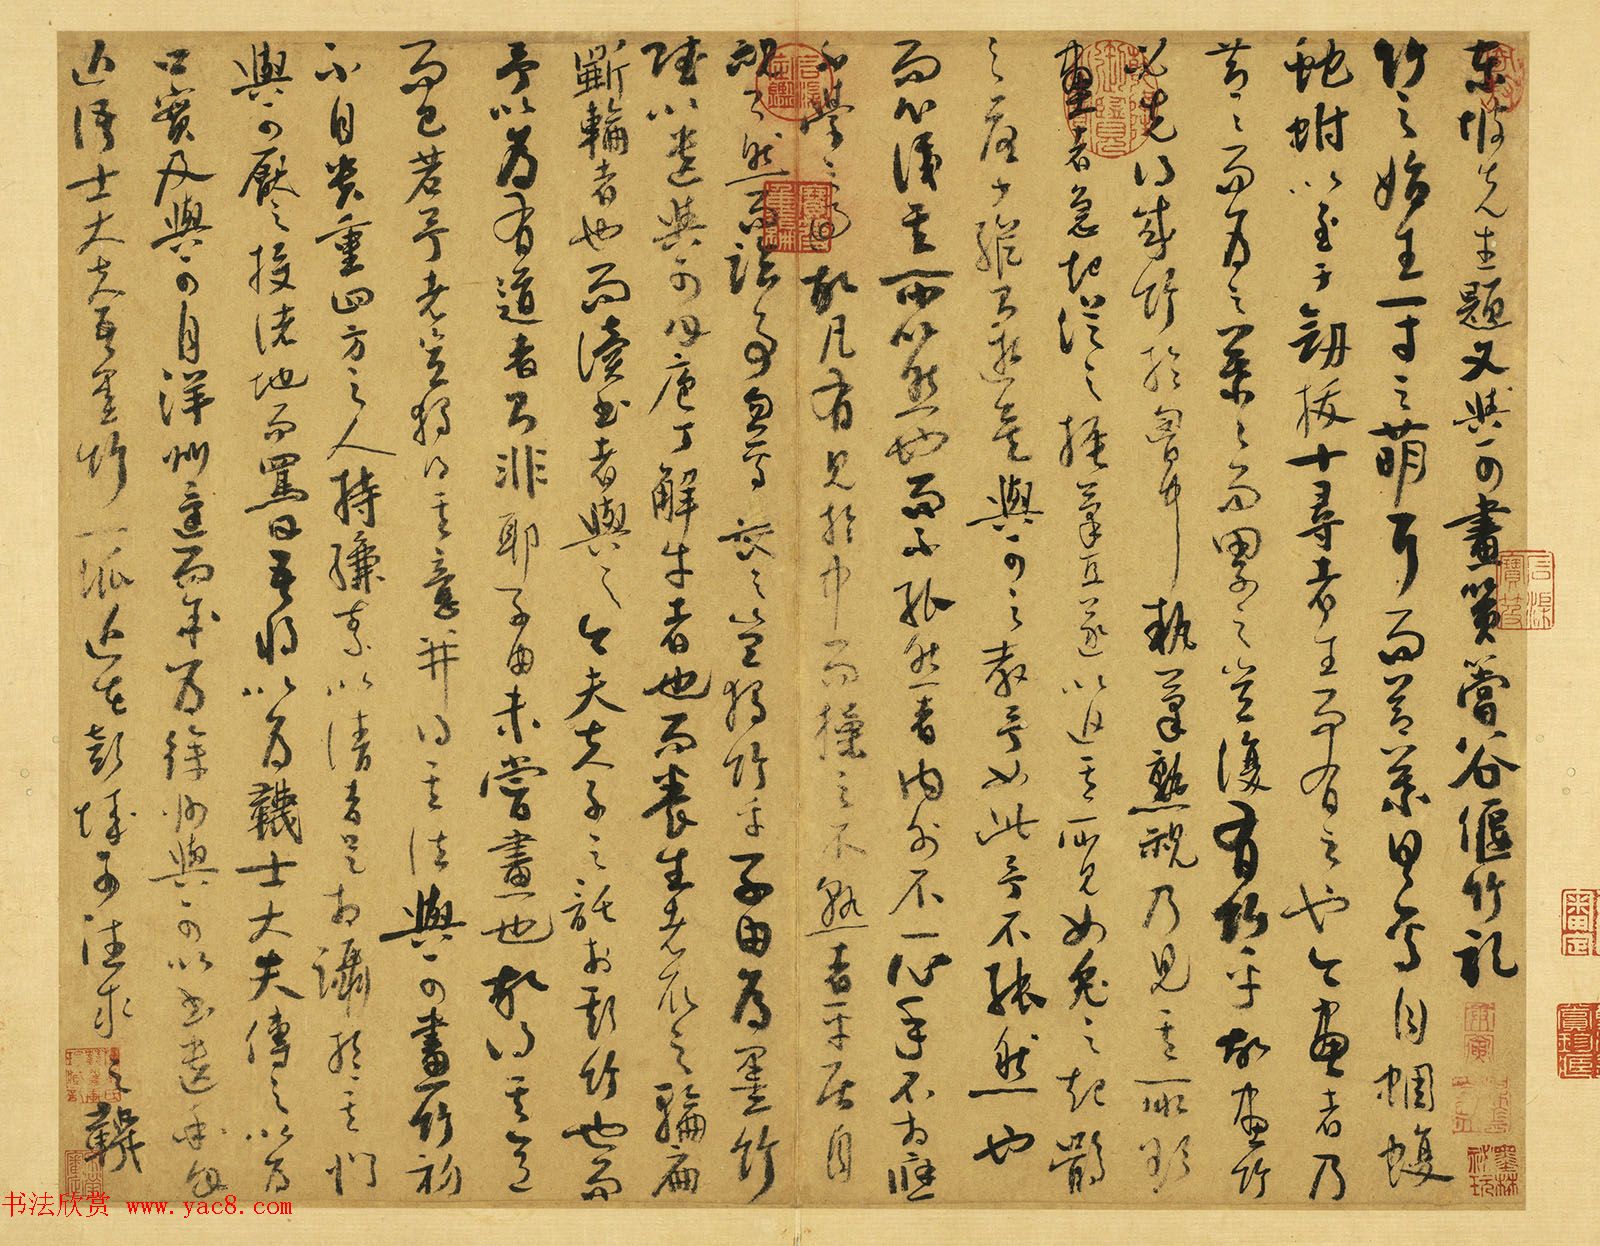 東坡先生題文與可畫篔簹谷偃竹記
竹之始生一寸之萌耳而節葉具焉自蜩蝮
蛇蚹以至于劍拔十尋者生而有之也今畫者乃
節節而為之葉葉而累之豈復有竹乎故畫竹
必先得成竹於胷中執筆熟視乃見其所欲
畫者急起從之振筆直遂以追其所見如兔之起鶻
之落少縱則逝矣與可之教予如此予不能然也
而心識其所以然也而不能然者內外不一心手不相應
不學之過也故凡有見於中而操之不熟者平居自
視了然而臨事忽焉喪之豈獨竹乎子由為墨竹
賦以遺與可曰庖丁解牛者也而養生者取之輪扁
斲輪者也而讀書者與之今夫夫子之託於斯竹也而
予以為有道者則非耶子由未嘗畫也故得其意
而已若予者豈獨得其意并得其法與可畫竹初
不自貴重四方之人持縑素以請者足相躡於其門
與可厭之投諸地而罵曰吾將以為韈士大夫傳之以為
口實及與可自洋州還而余為徐州與可以書遺余曰
近語士大夫吾墨竹一派近在彭城可往求之韈
書法欣赏 www.yac8.com